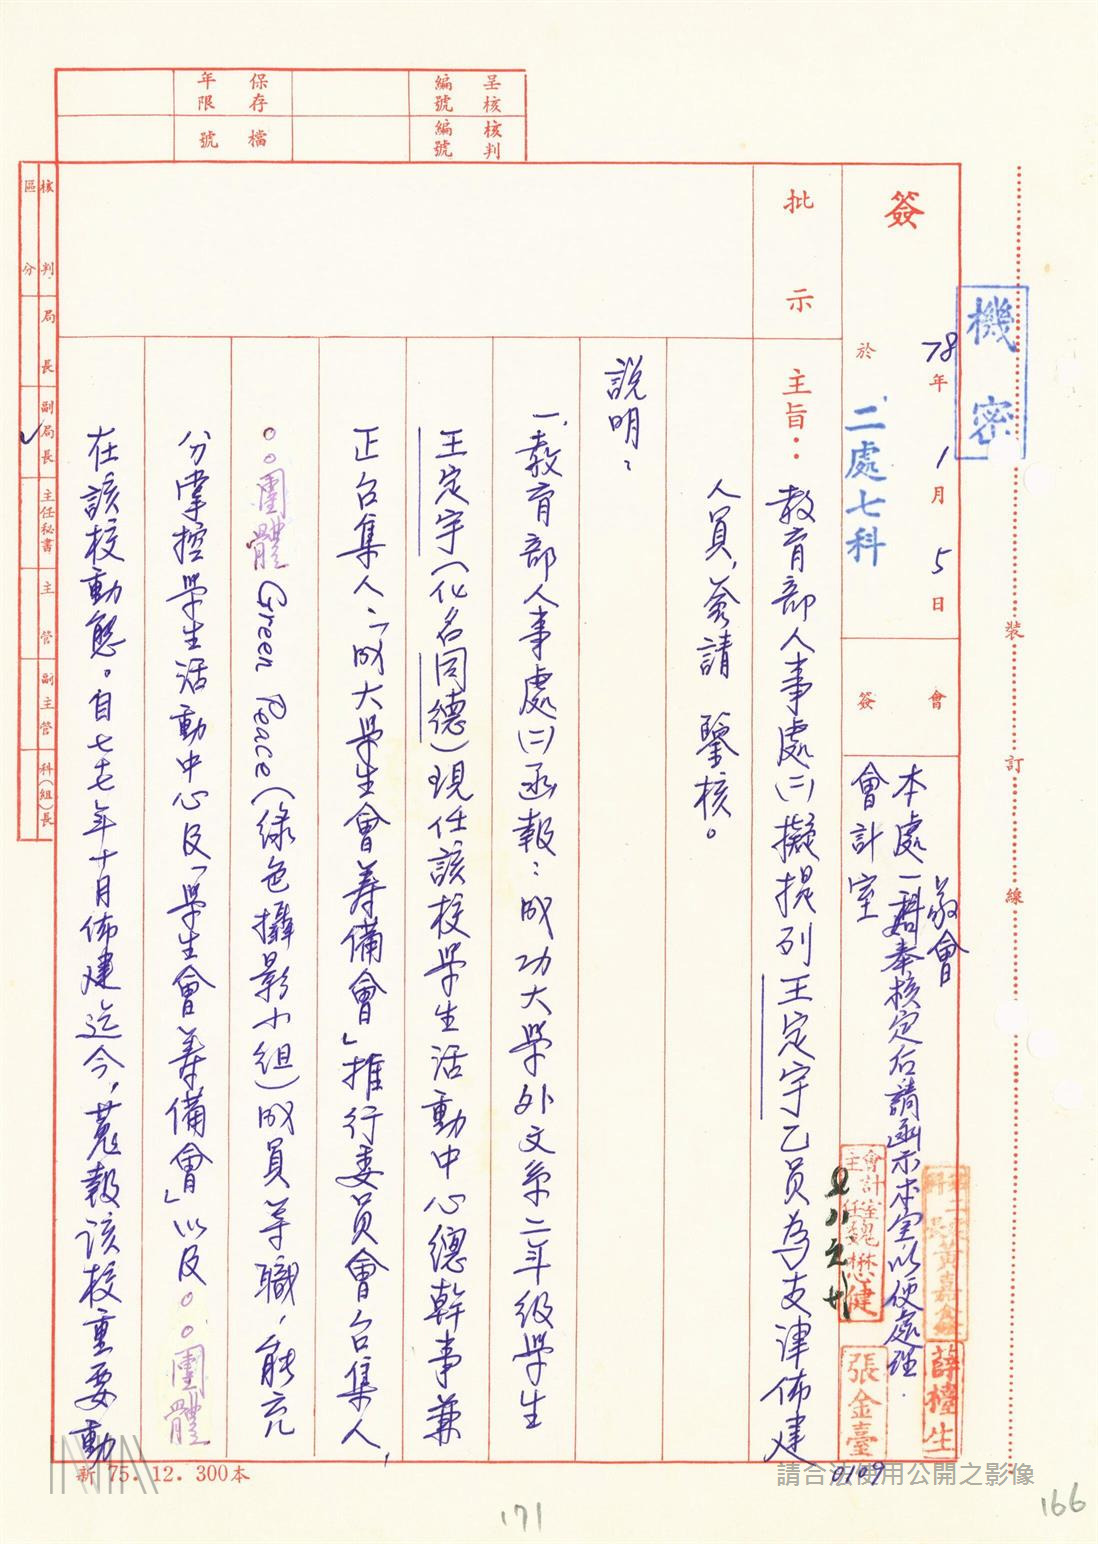 呈核編號
核判編號
保存年限
檔號
簽
機密
於
78年1月5日
二處七科
會簽
敬會
本處一科
會計室
如奉核定后請函示本室以便處理.
會計室主任魏懋健
張金臺
薛檯生
0109
批示
主旨：教育部人事處㈡擬提列王定宇乙員為支津佈建
人員，簽請　鑒核。
說明：
一、教育部人事處㈡函報：成功大學外文系二年級學生
王定宇（化名同德）現任該校學生活動中心總幹事兼
正召集人，「成大學生會籌備會」推行委員會召集人，
○○團體Green Peace（綠色攝影小組）成員等職，能充
分掌控學生活動中心及「學生會籌備會」以及○○團體
在該校動態。自七七年十月佈建迄今，蒐報該校重要動
核判區分
局長
副局長
✓
主任秘書
主管
副主管
科（組）長
裝訂線
新 75.12.300本
請合法使用公開之影像
171
166